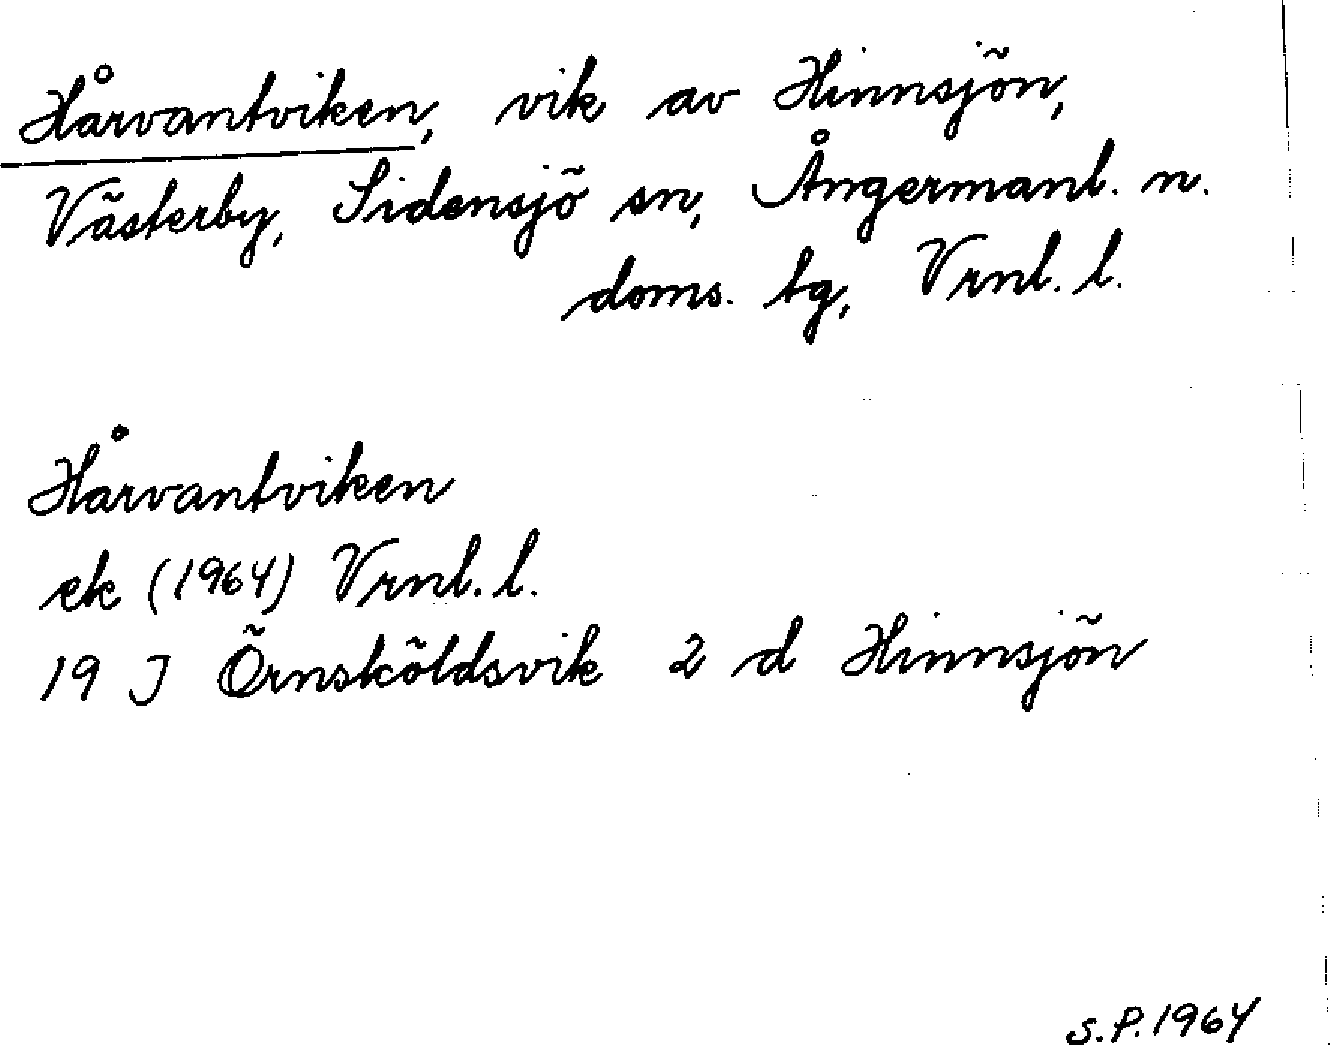 Hårvantviken, vik av Hinnsjön,
Västerby, Sidensjö sn, Ångermanl. n.
doms. tg, Vrnl. l.
Hårvantviken
ek (1964) Vrnl. l.
19 J Örnsköldsvik 2 d Hinnsjön
S.P. 1964